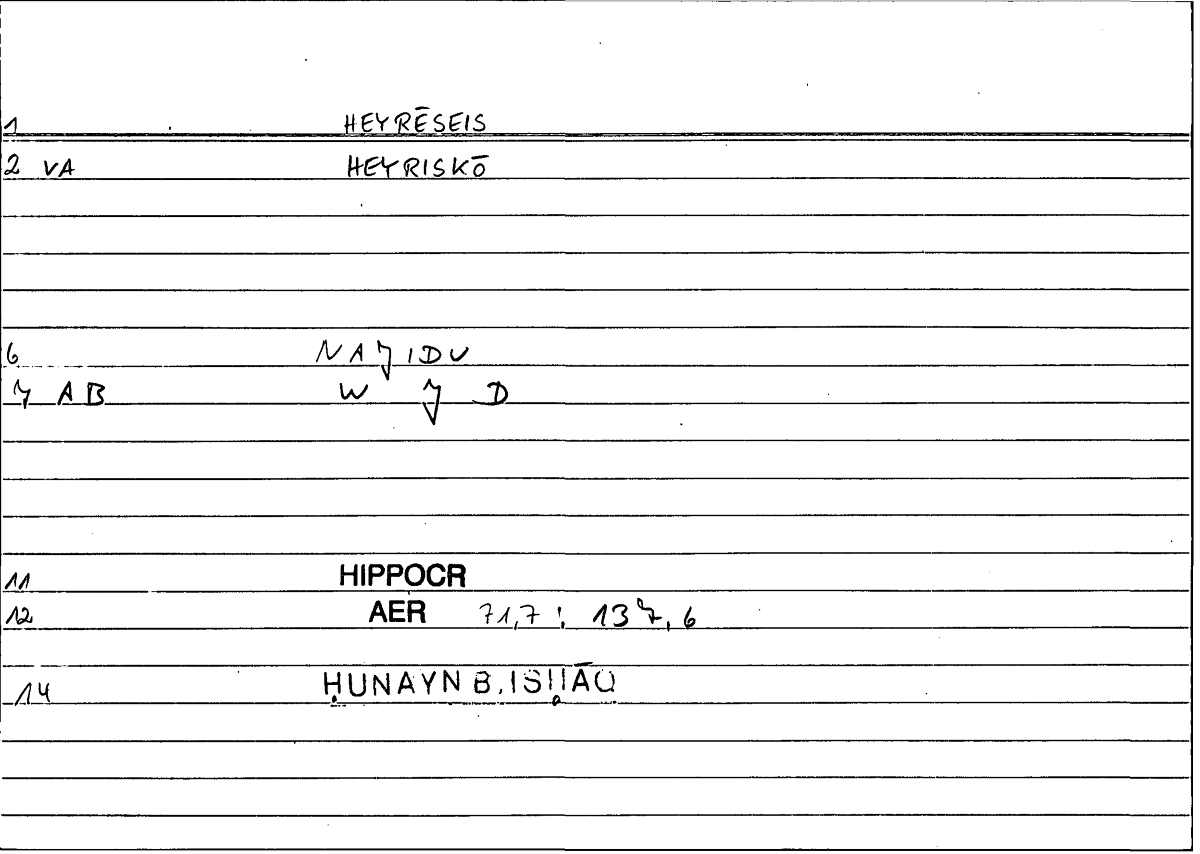 1 HEYRĒSEIS
2 VA HEYRISKŌ
6 NAJIDU
7 AB W J D
11 HIPPOCR
12 AER 71,7 ; 137,6
14 ḤUNAYN B. ISḤĀQ